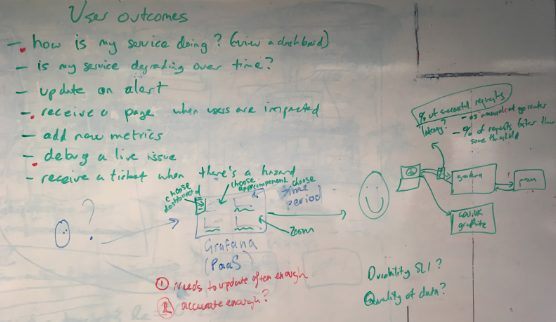 User outcomes
- how is my service doing? (view a dashboard)
- is my service degrading over time?
- update on alert
- receive a page when users are impacted
- add new metrics
- debug a live issue
- receive a ticket when there's a hazard
choose dashboard
choose app component
choose time period
?
Zoom
Grafana
(PaaS)
1 Needs to update often enough
2 accurate enough?
% of successful requests
- % of requests faster than some threshold
grafana
graphite
Durability SLI?
Quality of data?